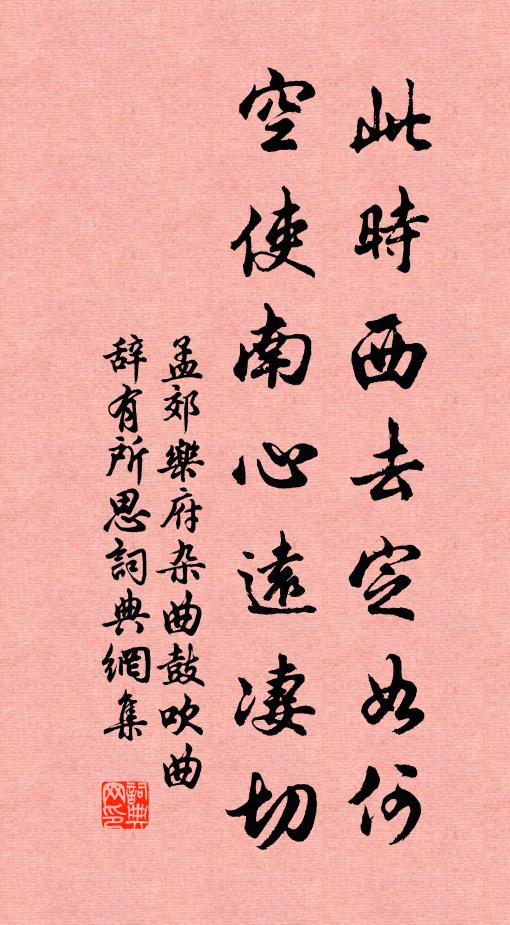 此時西去定如何
空使南心遠凄切
孟郊樂府杂曲鼓吹曲
辞有所思詞典網集
詞典
网印